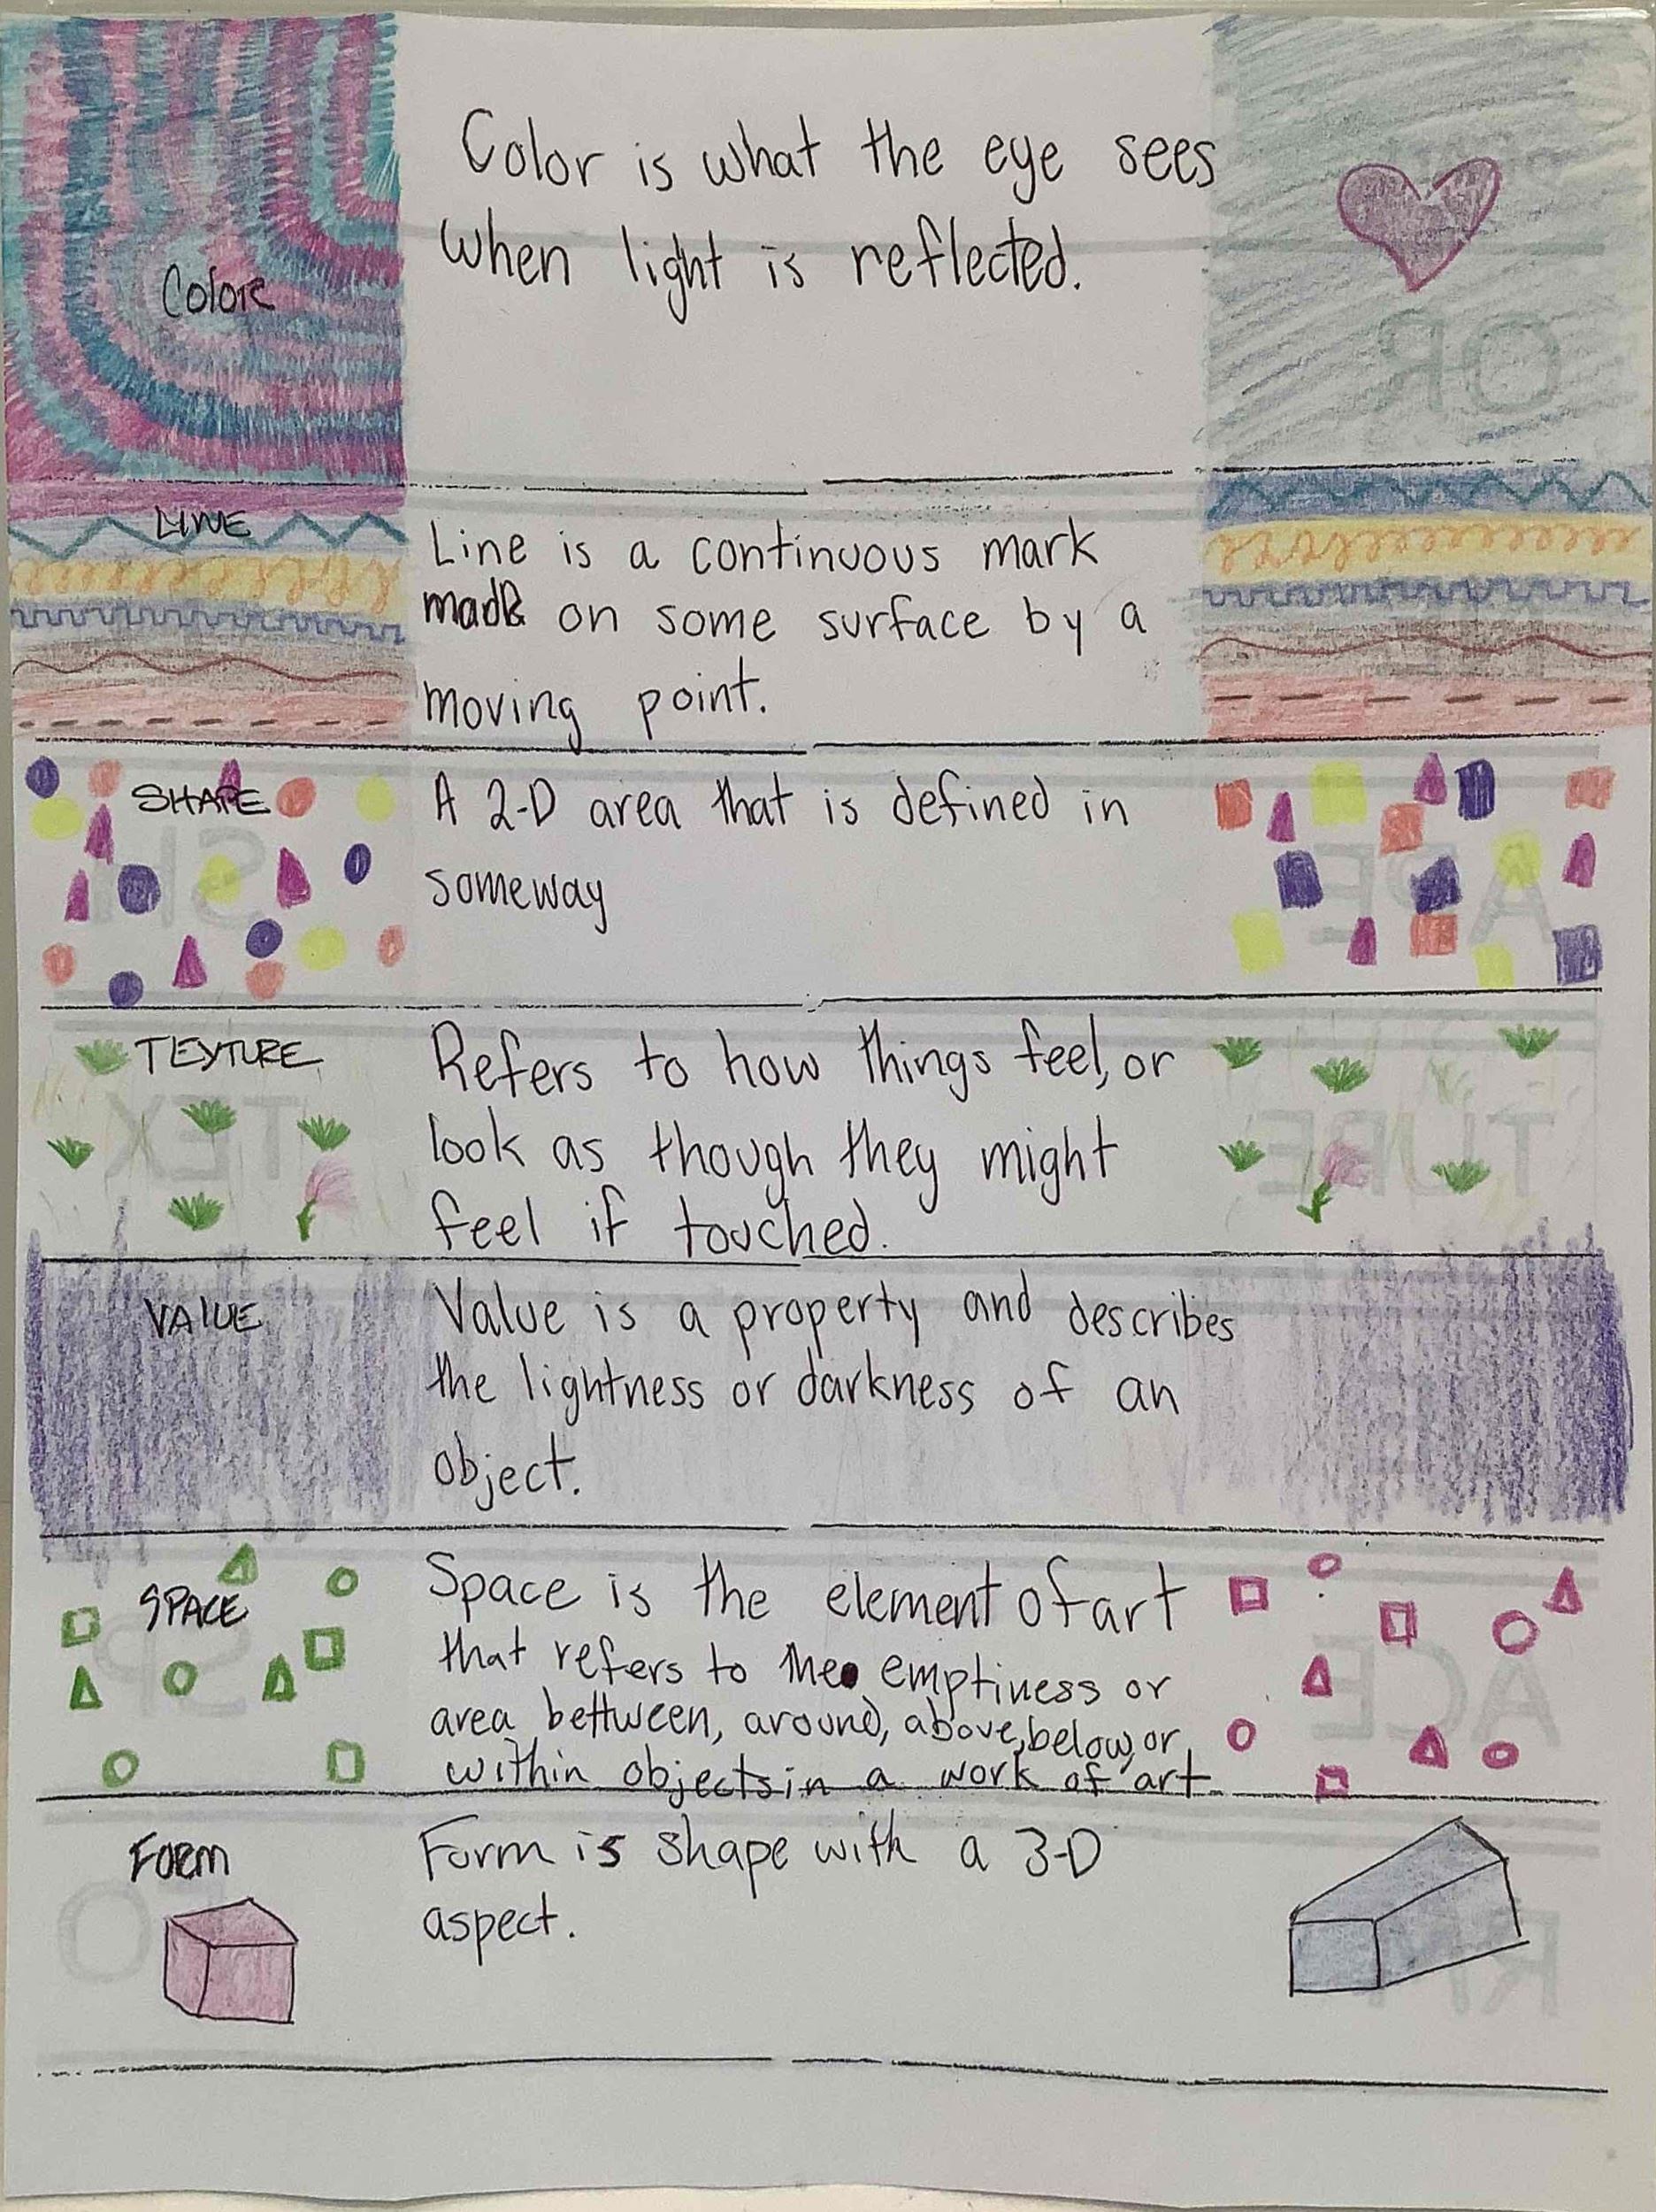 Color
Color is what the eye sees
when light is reflected.
LINE
Line is a continuous mark
made on some surface by a
moving point.
SHAPE
A 2-D area that is defined in
someway
TEXTURE
Refers to how things feel, or
look as though they might
feel if touched.
VALUE
Value is a property and describes
the lightness or darkness of an
object.
SPACE
Space is the element of art
that refers to the emptiness or
area bettween, around, above, below, or
within objects in a work of art
FORM
Form is shape with a 3-D
aspect.